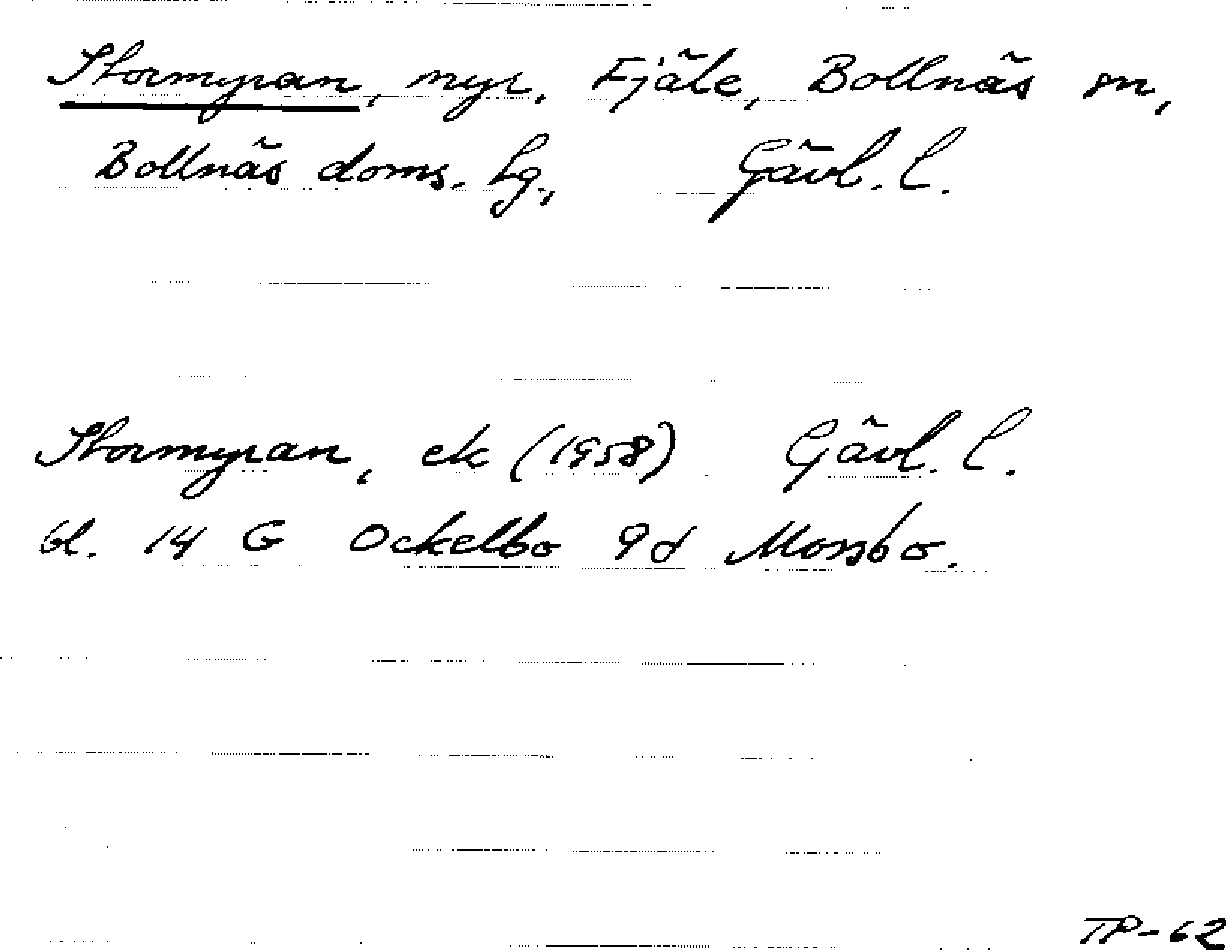 Stormyran, myr, Fjäle, Bollnäs sn,
Bollnäs doms. hg., Gävl. l.
Stormyran, ek (1958) Gävl. l.
bl. 14 G Ockelbo 9d Morsbo.
TP-62